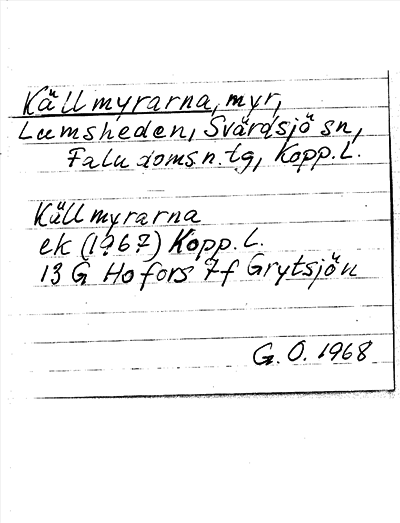 Källmyrarna, myr,
Lumsheden, Svärdsjö sn,
Falu domsn.tg, Kopp.L.
Källmyrarna
ek (1967) Kopp.L.
13 G Hofors 7f Grytsjön
G. O. 1968